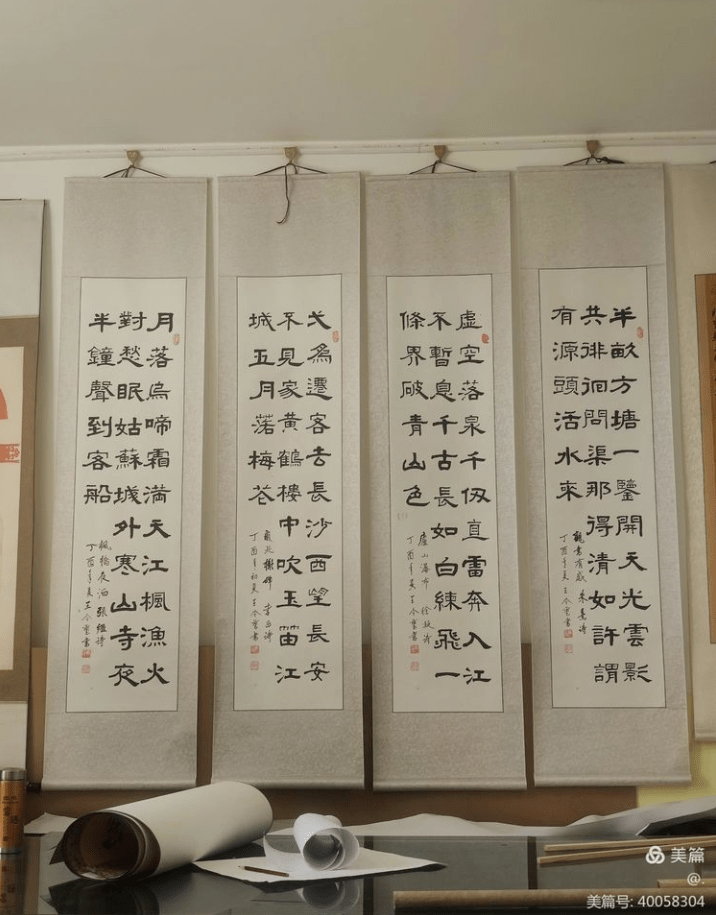 半畝方塘一鑒開天光雲影
共徘徊問渠那得清如許謂
有源頭活水來
觀書有感 朱熹詩
丁酉年夏王書
虛空落泉千仞直雷奔入江
不暫息千古長如白練飛一
條界破青山色
廬山瀑布 徐凝詩
丁酉年夏王書
弌爲遷客去長沙西望長安
不見家黃鶴樓中吹玉笛江
城五月落梅花
李白詩
丁酉年初夏王書
月落烏啼霜滿天江楓漁火
對愁眠姑蘇城外寒山寺夜
半鐘聲到客船
楓橋夜泊 張繼詩
丁酉年夏王書
美篇
@.
美篇号: 40058304